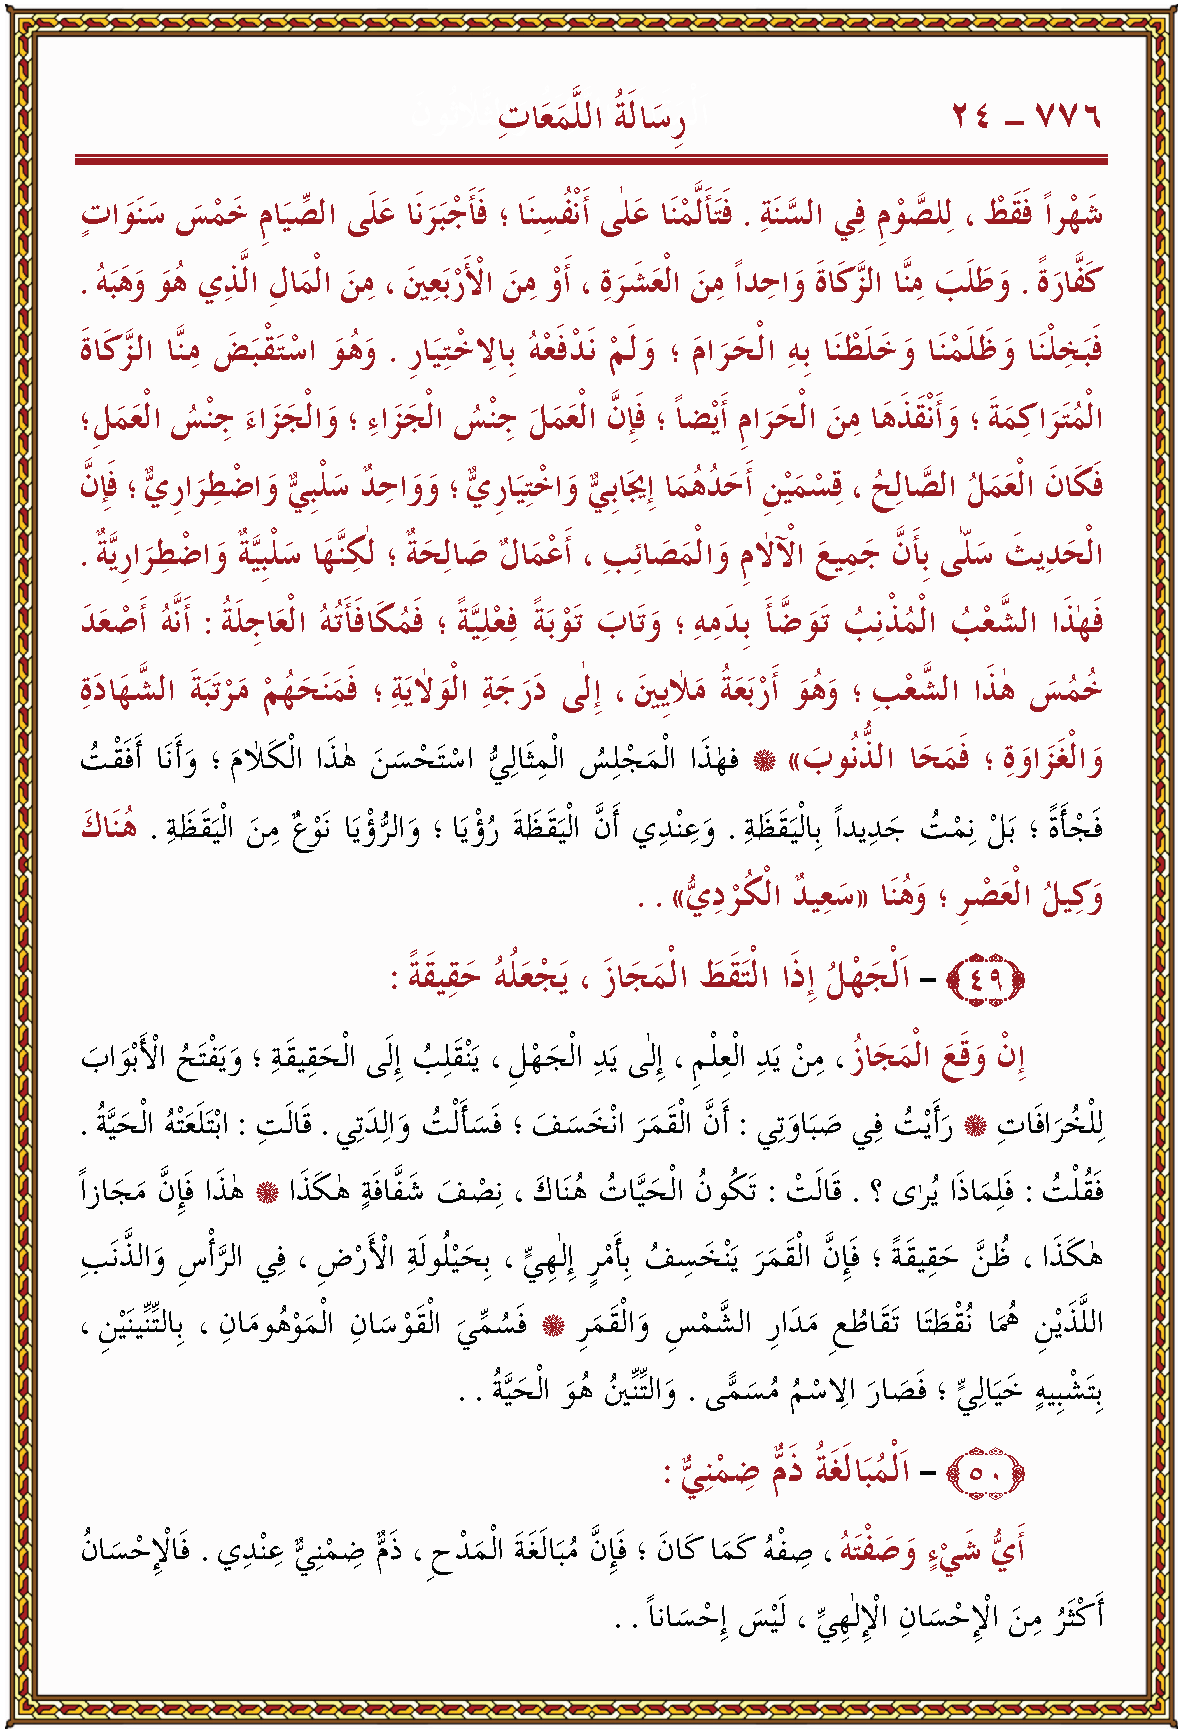 ٧٧٦ – ٢٤ رِسَالَةُ اللَّمَعَاتِ
شَهْراً فَقَطْ ، لِلصَّوْمِ فِي السَّنَةِ . فَتَأَلَّمْنَا عَلٰى أَنْفُسِنَا ؛ فَأَجْبَرَنَا عَلَى الصِّيَامِ خَمْسَ سَنَوَاتٍ
كَفَّارَةً . وَطَلَبَ مِنَّا الزَّكَاةَ وَاحِداً مِنَ الْعَشَرَةِ ، أَوْ مِنَ الْأَرْبَعِينَ ، مِنَ الْمَالِ الَّذِي هُوَ وَهَبَهُ .
فَبَخِلْنَا وَظَلَمْنَا وَخَلَطْنَا بِهِ الْحَرَامَ ؛ وَلَمْ نَدْفَعْهُ بِالِاخْتِيَارِ . وَهُوَ اسْتَقْبَضَ مِنَّا الزَّكَاةَ
الْمُتَرَاكِمَةَ ؛ وَأَنْقَذَهَا مِنَ الْحَرَامِ أَيْضاً ؛ فَإِنَّ الْعَمَلَ جِنْسُ الْجَزَاءِ ؛ وَالْجَزَاءَ جِنْسُ الْعَمَلِ؛
فَكَانَ الْعَمَلُ الصَّالِحُ ، قِسْمَيْنِ أَحَدُهُمَا إِيجَابِيٌّ وَاخْتِيَارِيٌّ ؛ وَوَاحِدٌ سَلْبِيٌّ وَاضْطِرَارِيٌّ ؛ فَإِنَّ
الْحَدِيثَ سَلّٰى بِأَنَّ جَمِيعَ الْآلَامِ وَالْمَصَائِبِ ، أَعْمَالٌ صَالِحَةٌ ؛ لٰكِنَّهَا سَلْبِيَّةٌ وَاضْطِرَارِيَّةٌ .
فَهٰذَا الشَّعْبُ الْمُذْنِبُ تَوَضَّأَ بِدَمِهِ ؛ وَتَابَ تَوْبَةً فِعْلِيَّةً ؛ فَمُكَافَأَتُهُ الْعَاجِلَةُ : أَنَّهُ أَصْعَدَ
خُمُسَ هٰذَا الشَّعْبِ ؛ وَهُوَ أَرْبَعَةُ مَلَايِينَ ، إِلٰى دَرَجَةِ الْوَلَايَةِ ؛ فَمَنَحَهُمْ مَرْتَبَةَ الشَّهَادَةِ
وَالْغَزَوَاةِ ؛ فَمَحَا الذُّنُوبَ» ۞ فهٰذَا الْمَجْلِسُ الْمِثَالِيُّ اسْتَحْسَنَ هٰذَا الْكَلَامَ ؛ وَأَنَا أَفَقْتُ
فَجْأَةً ؛ بَلْ نِمْتُ جَدِيداً بِالْيَقَظَةِ . وَعِنْدِي أَنَّ الْيَقَظَةَ رُؤْيَا ؛ وَالرُّؤْيَا نَوْعٌ مِنَ الْيَقَظَةِ . هُنَاكَ
وَكِيلُ الْعَصْرِ ؛ وَهُنَا «سَعِيدٌ الْكُرْدِيُّ» . .
﴿٤٩﴾ – اَلْجَهْلُ إِذَا الْتَقَطَ الْمَجَازَ ، يَجْعَلُهُ حَقِيقَةً :
إِنْ وَقَعَ الْمَجَازُ ، مِنْ يَدِ الْعِلْمِ ، إِلٰى يَدِ الْجَهْلِ ، يَنْقَلِبُ إِلَى الْحَقِيقَةِ ؛ وَيَفْتَحُ الْأَبْوَابَ
لِلْخُرَافَاتِ ۞ رَأَيْتُ فِي صَبَاوَتِي : أَنَّ الْقَمَرَ انْخَسَفَ ؛ فَسَأَلْتُ وَالِدَتِي . قَالَتِ : ابْتَلَعَتْهُ الْحَيَّةُ .
فَقُلْتُ : فَلِمَاذَا يُرٰى ؟ . قَالَتْ : تَكُونُ الْحَيَّاتُ هُنَاكَ ، نِصْفَ شَفَّافَةٍ هٰكَذَا ۞ هٰذَا فَإِنَّ مَجَازاً
هٰكَذَا ، ظُنَّ حَقِيقَةً ؛ فَإِنَّ الْقَمَرَ يَنْخَسِفُ بِأَمْرٍ إِلٰهِيٍّ ، بِحَيْلُولَةِ الْأَرْضِ ، فِي الرَّأْسِ وَالذَّنَبِ
اللَّذَيْنِ هُمَا نُقْطَتَا تَقَاطُعِ مَدَارِ الشَّمْسِ وَالْقَمَرِ ۞ فَسُمِّيَ الْقَوْسَانِ الْمَوْهُومَانِ ، بِالتِّنِّينَيْنِ ،
بِتَشْبِيهٍ خَيَالِيٍّ ؛ فَصَارَ الِاسْمُ مُسَمًّى . وَالتِّنِّينُ هُوَ الْحَيَّةُ . .
﴿٥٠﴾ – اَلْمُبَالَغَةُ ذَمٌّ ضِمْنِيٌّ :
أَيُّ شَيْءٍ وَصَفْتَهُ ، صِفْهُ كَمَا كَانَ ؛ فَإِنَّ مُبَالَغَةَ الْمَدْحِ ، ذَمٌّ ضِمْنِيٌّ عِنْدِي . فَالْإِحْسَانُ
أَكْثَرُ مِنَ الْإِحْسَانِ الْإِلٰهِيِّ ، لَيْسَ إِحْسَاناً . .